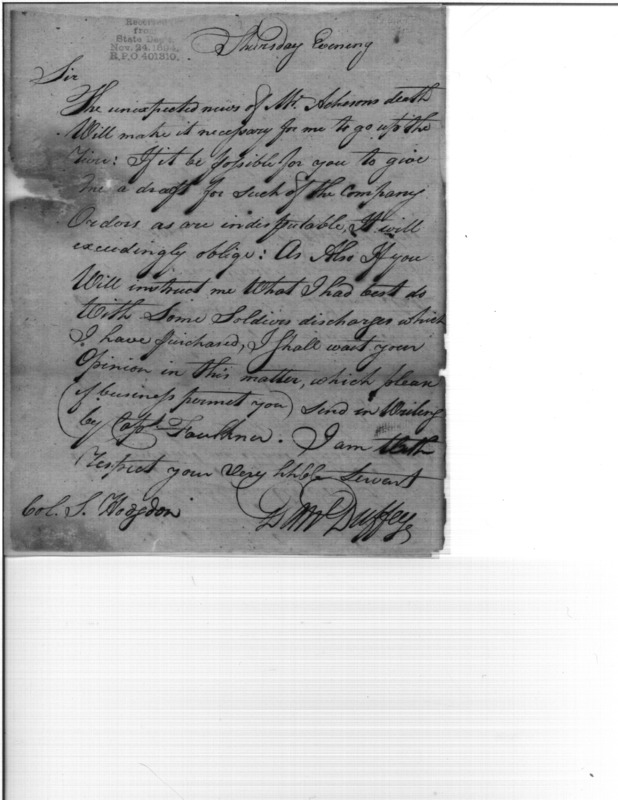 Received
from
State Dept.
Nov. 24, 1894,
R.P.O. 401310.
Thursday Evening
Sir
The unexpected news of Mr. Achesons death
Will make it necessary for me to go up the
: If it be possible for you to give
me a draft for such of the Company
Orders as are indisputable, It will
exceedingly oblige: As Also If you
Will instruct me What I had best do
With Some Soldiers discharges which
I have purchased, I shall wait your
Opinion in this matter, which please
(if business permet you) send in Writing
by Capt. Faulkner. I am With
respect your very hble Servant
D McDuffey
Col. S. Hogdon